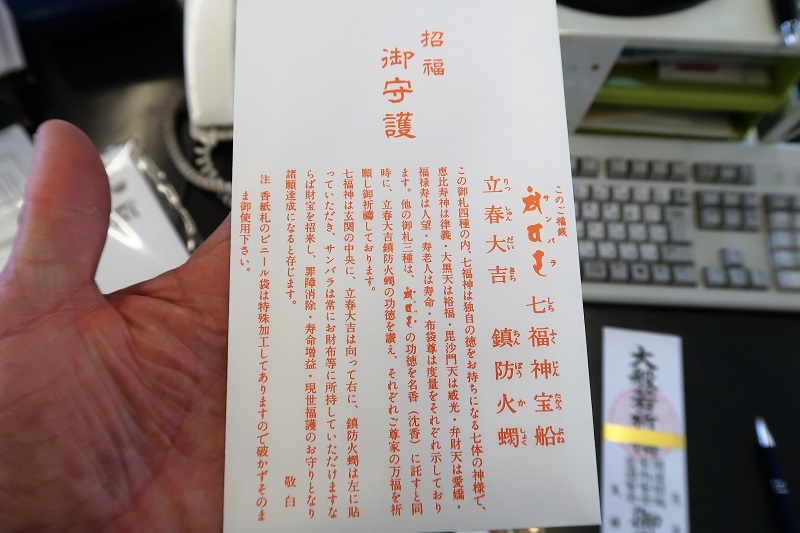 招福
御守護
このご福銭
サンバラ 七福神宝船
しちふくじんたからぶね
立春大吉 鎮防火蠋
りっしゅんだいきち ちんぼうかしょく
この御札四種の内、七福神は独自の徳をお持ちになる七体の神様で、
恵比寿神は律義・大黒天は裕福・毘沙門天は威光・弁財天は愛嬌・
福禄寿は人望・寿老人は寿命・布袋尊は度量をそれぞれ示しており
ます。他の御札三種は、の功徳を名香（沈香）に託すと同
時に、立春大吉鎮防火蠋の功徳を讃え、それぞれご尊家の万福を祈
願し御祈禱しております。
七福神は玄関の中央に、立春大吉は向って右に、鎮防火蠋は左に貼
っていただき、サンバラは常にお財布等に所持していただけますな
らば財宝を招来し、罪障消除・寿命増益・現世福護のお守りとなり
諸願達成になると存じます。
敬白
注 香紙札のビニール袋は特殊加工してありますので破かずそのま
ま御使用下さい。
大般若祈